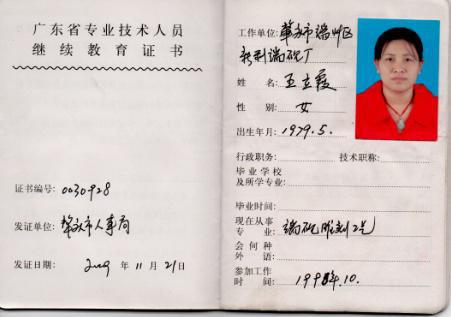 广东省专业技术人员
继续教育证书
证书编号: 0030928
发证单位: 肇庆市人事局
发证日期: 2009 年 11 月 21 日
工作单位: 肇庆市端州区
端砚厂
姓名: 王立霞
性别: 女
出生年月: 1979.5.
行政职务: 技术职称:
毕业学校
及所学专业:
毕业时间:
现在从事
专业: 端砚雕刻工艺
会何种
外语:
参加工作
时间: 1998年.10.